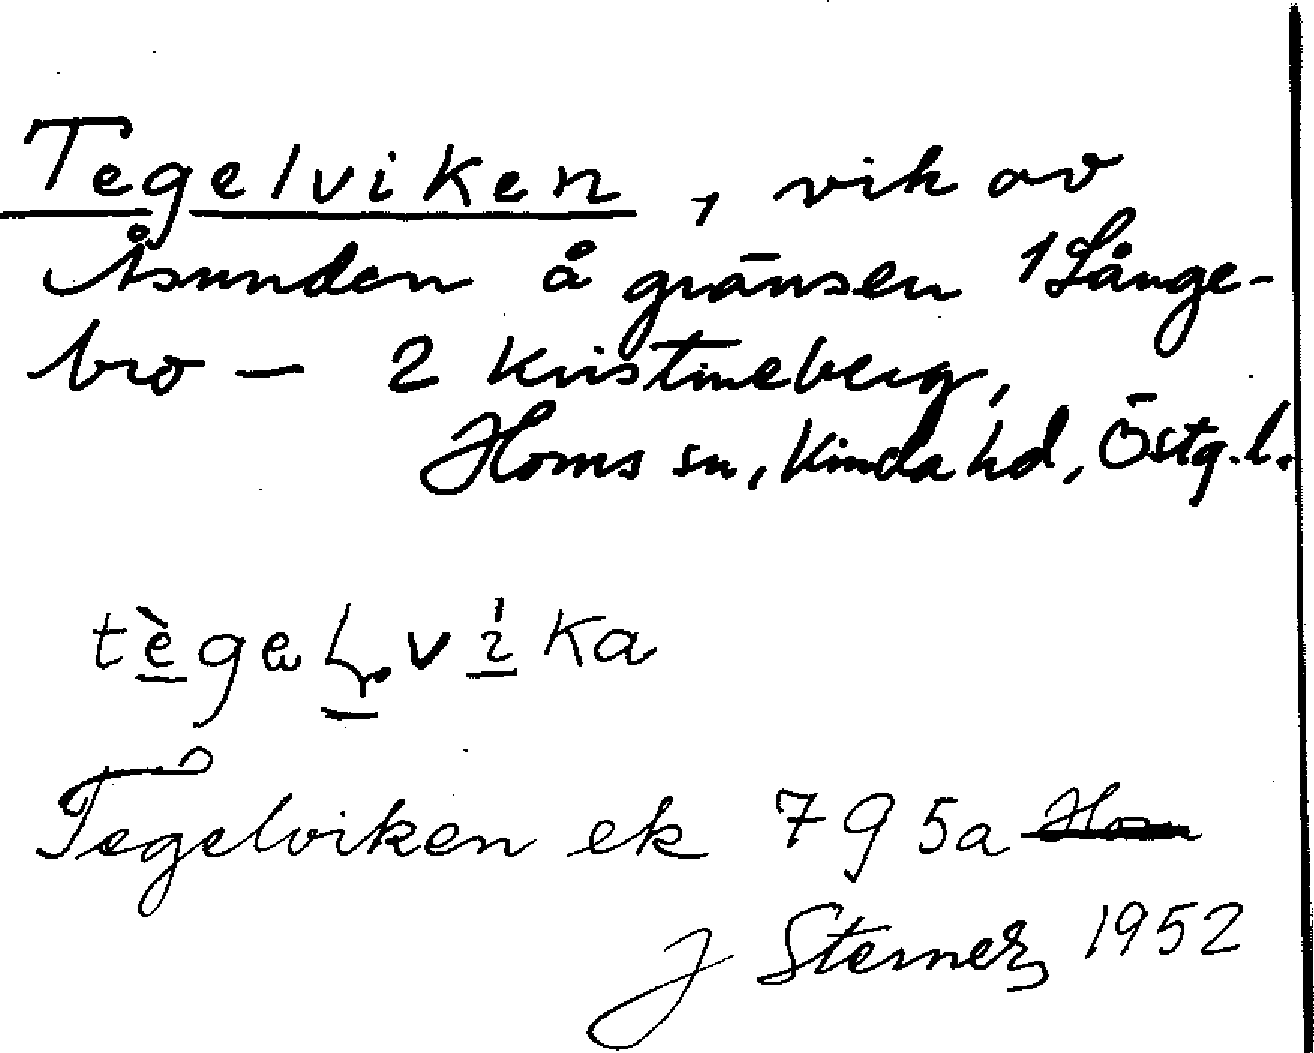 Tegelviken, vik av
Åsunden å gränsen 1 Långe-
bro — 2 Kristineberg,
Horns sn, Kinda hd, Östg.l.
Tegelviken ek 795a
J Sterner 1952